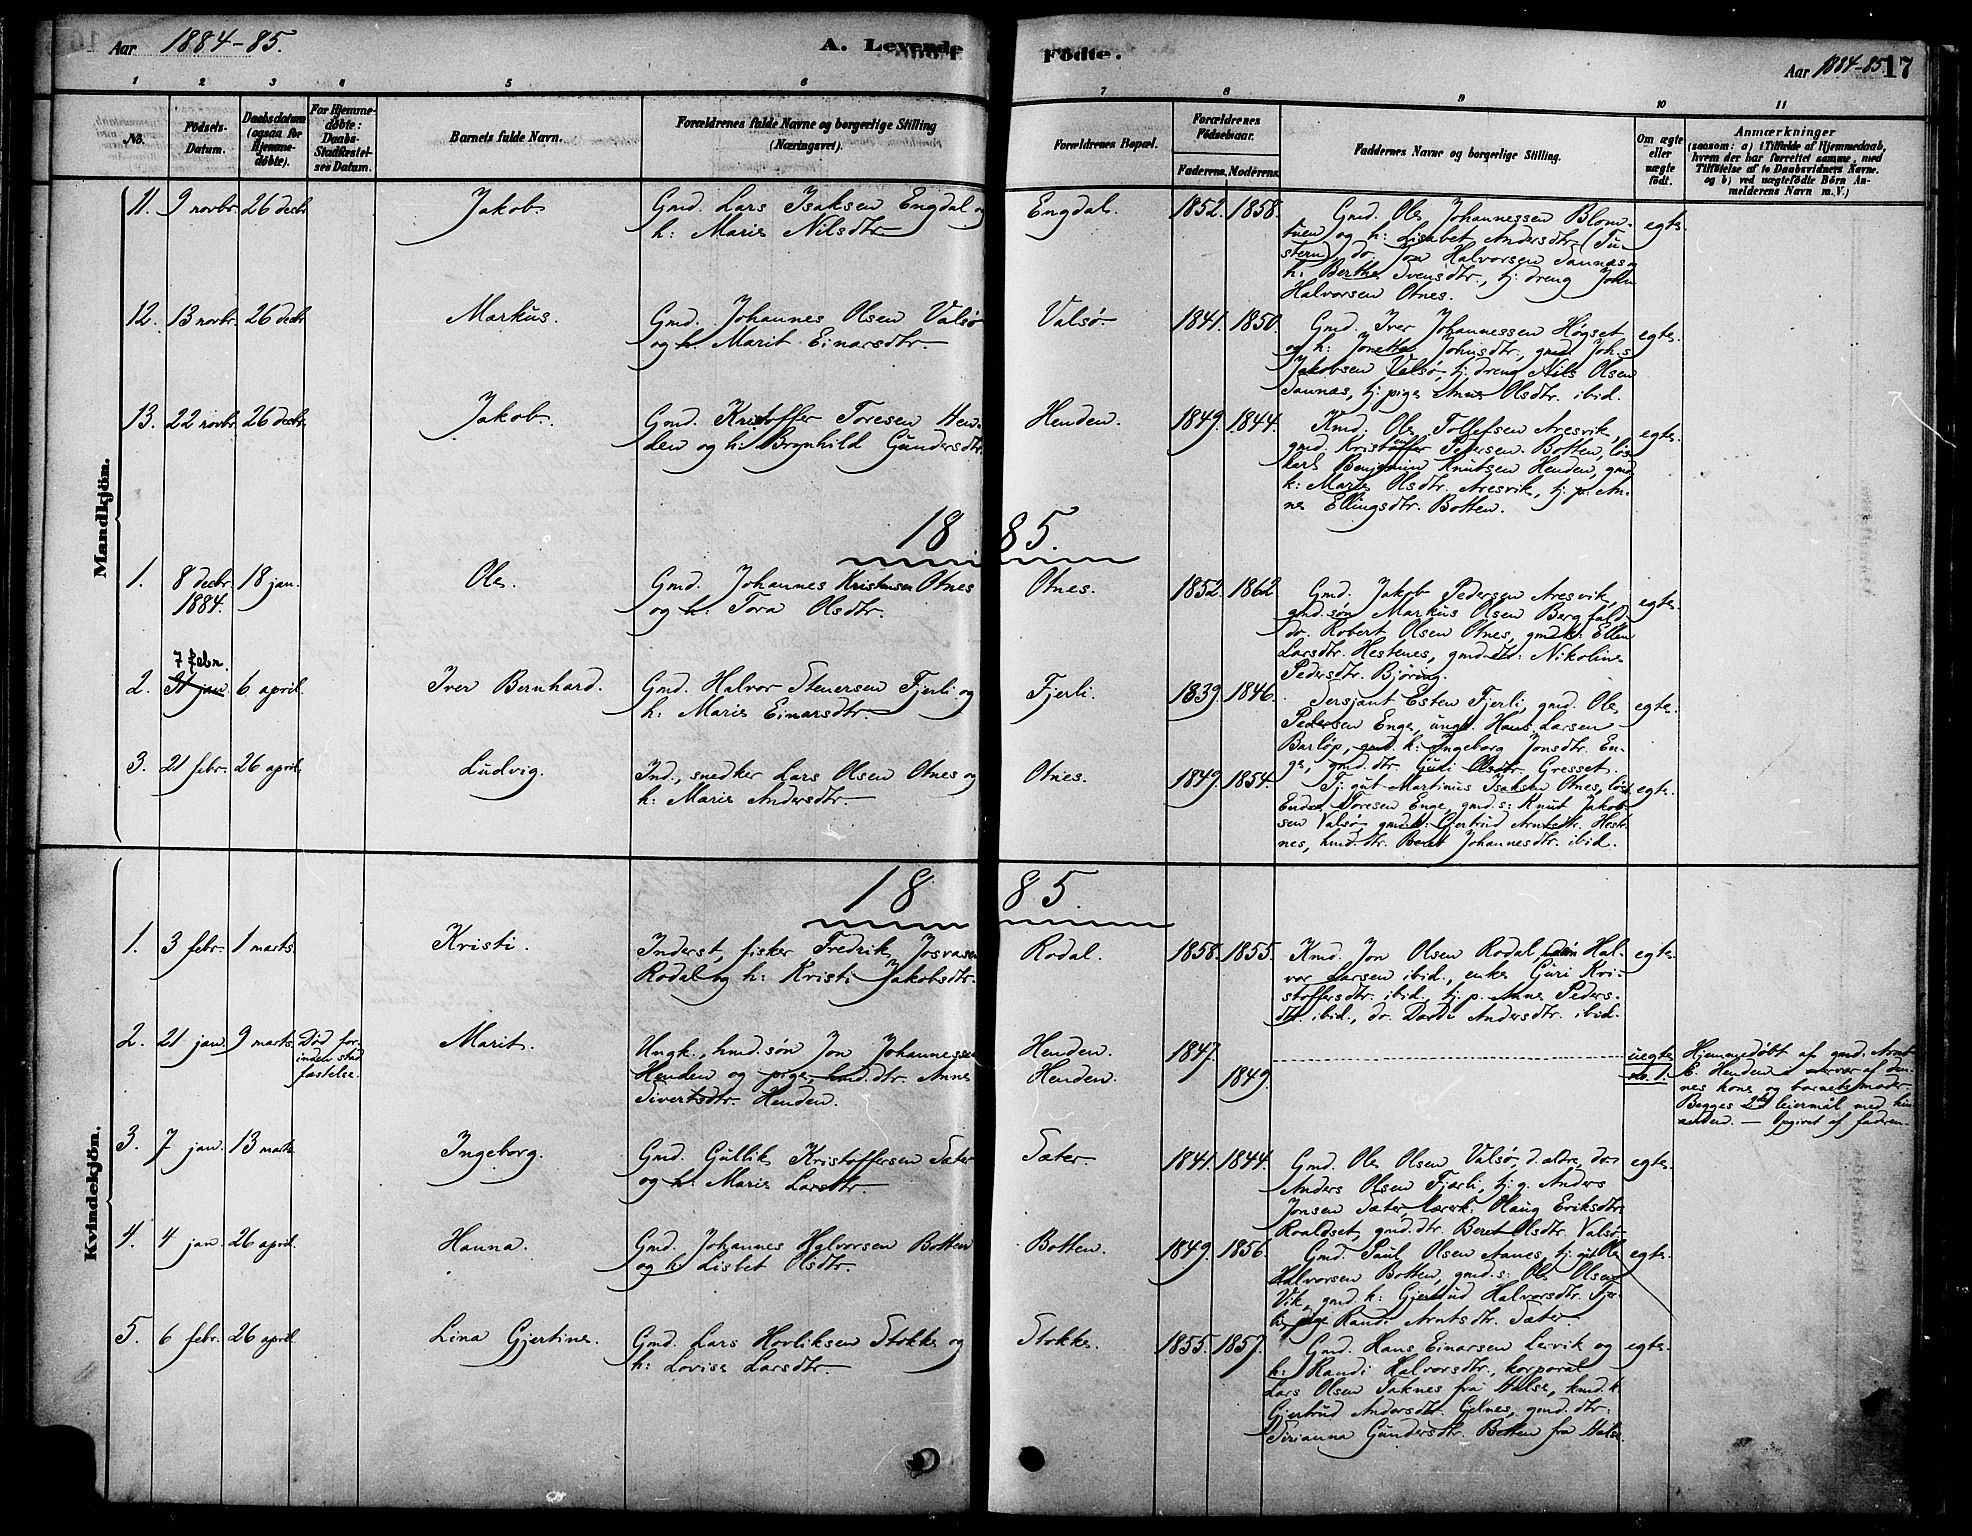 Aar 1884-85.
A. Levende Födte.
Aar 1884-85 17
1 2 3 4 5 6 7 8 9 10 11
No.
Födsels-
Datum.
Daabsdatum
(ogsaa for
Hjemme-
döbte).
For Hjemme-
döbte:
Daabs-
Stadfæstel-
ses Datum.
Barnets fulde Navn.
Forældrenes fulde Navne og borgerlige Stilling
(Næringsvei).
Forældrenes Bopæl.
Forældrenes
Födselsaar.
Faderens. Moderens.
Faddernes Navne og borgerlige Stilling.
Om ægte
eller
uægte
födt.
Anmærkninger
(saasom: a) i Tilfælde af Hjemmedaab,
hvem der har forrettet samme, med
Tilföielse af to Daabsvidners Navne.
og b) ved uægtefödte Börn An-
melderens Navn m. V.)
Mandkjön.
11. 9 novbr. 26 decbr. Jakob.
Gmd. Lars Isaksen Engdal og
h: Marie Nilsdtr.
Engdal. 1852. 1858.
Gmd. Ole Johannessen Blom-
tuen og h: Lisabet Andersdtr. (Tu-
stern), do. Jon Halvorsen Taunæs
h. Berthe Svensdtr., tj. dreng John
Halvorsen Otnes.
egte.
12. 13 novbr. 26 decbr. Markus.
Gmd. Johannes Olsen Valsø
og h. Marit Einarsdtr.
Valsø. 1841. 1850.
Gmd. Iver Johannessen Høgset
og h: Jonetta Johnsdtr., gmd. Joh.s
Jakobsen Valsø, tj. dreng Nils Olsen
Taunæs, tj. pige Anne Olsdtr. ibid.
egte.
13. 22 novbr. 26 decbr. Jakob.
Gmd. Kristoffer Toresen Hen-
den og h: Brynhild Gundersdtr.
Henden. 1849. 1844.
Kmd. Ole Tollefsen Aresvik,
gmd. Kristoffer Pedersen Botten, løs-
karl Benjamin Knutsen Henden, gmd.
k: Marie Olsdtr. Aresvik, tj. p. An-
ne Ellingsdtr. Botten.
egte.
1885.
1. 8 decbr. 1884. 18 jan. Ole.
Gmd. Johannes Kristensen Otnes
og h: Tora Olsdtr.
Otnes. 1852. 1862
Gmd. Jakob Pedersen Aresvik,
gmd. søn Markus Olsen Bergfald
do. Robert Olsen Otnes, gmd. k: Ellen
Larsdtr. Hestenes, gmd. dtr: Nikoline
Pedersdtr. Bjøring.
egte.
7 febr.
2. 31 jan. 6 april. Iver Bernhard.
Gmd. Halvor Stenersen Fjerli og
h: Marie Einarsdtr.
Fjerli. 1839. 1846.
Sersjant Esten Fjerli, gmd. Ole
Pedersen Enge, ungk. Hans Larsen
Barløp, gmd. k: Ingeborg Jonsdtr. En-
ge, gmd. dtr. Guri Olsdtr. Gresset.
egte.
3. 21 febr. 26 april. Ludvig.
Ind., snedker Lars Olsen Otnes og
h: Marie Andersdtr.
Otnes. 1849. 1854.
Tj. gut Martinus Isaksen Otnes, løsk.
Endre Toresen Enge, gmd. s: Knut Jakob-
sen Valsø, gmd. k: Gjertrud Arntsdtr. Hest-
nes, hmd. dtr. Beret Johannesdtr. ibid.
egte.
Kvindekjön.
1885
1. 3 febr. 1 marts. Kristi.
Inderst, fisker Fredrik Josvasen
Rodal og h: Kristi Jakobsdtr.
Rodal. 1858. 1855.
Kmd. Jon Olsen Rodal, Hal-
vor Larsen ibid., enke Guri Kri-
stoffersdtr. ibid., tj. p. Anne Peders-
dtr. ibid., do. Dordi Andersdtr. ibid.
egte.
2. 21 jan. 9 marts.
Død for-
inden stad
fæstelse.
Marit.
Ungk., hmd. søn Jon Johannessen
Henden og pige, hmd. dtr. Anne
Sivertsdtr. Henden.
Henden. 1847.
Henden. 1849.
uegte
No. 1.
Hjemmedøbt af gmd. Arnt
E. Henden i nærvær af den-
nes kone og barnets moder.
Begges 2det leiermål med hin-
anden. — Opgivet af faderen.
3. 7 jan. 13 marts. Ingeborg.
Gmd. Gullik Kristoffersen Sæter
og h: Marie Larsdtr.
Sæter. 1841. 1844.
Gmd. Ole Olsen Valsø, d. ældre, do.
Anders Olsen Fjærli, tj. g. Anders
Jonsen Sæter, lærerk: Haug Eriksdtr.
Roaldset, gmd. dtr. Beret Olsdtr. Valsø.
egte.
4. 4 jan. 26 april. Hanna.
Gmd. Johannes Halvorsen Botten
og h. Lisbet Olsdtr.
Botten. 1849. 1856.
Gmd. Paul Olsen Aanes, tj. gut Ole
Halvorsen Botten, gmd. s: Ole Olsen
Vik, gmd. k: Gjertrud Halvorsdtr. Fjer-
li, pige Randi Arntsdtr. Sæter.
egte.
5. 6 febr. 26 april. Lina Gjertine.
Gmd. Lars Hovliksen Stokke og
h: Lovise Larsdtr.
Stokke. 1855. 1857.
Gmd. Hans Einarsen Lervik og
k: Randi Halvorsdtr., korporal
Lars Olsen Taknes fra Halse, kmd. k.
Gjertrud Andersdtr. Gelnes, gmd. dtr:
Sirianna Gundersdtr. Botten fra Halse.
egte.